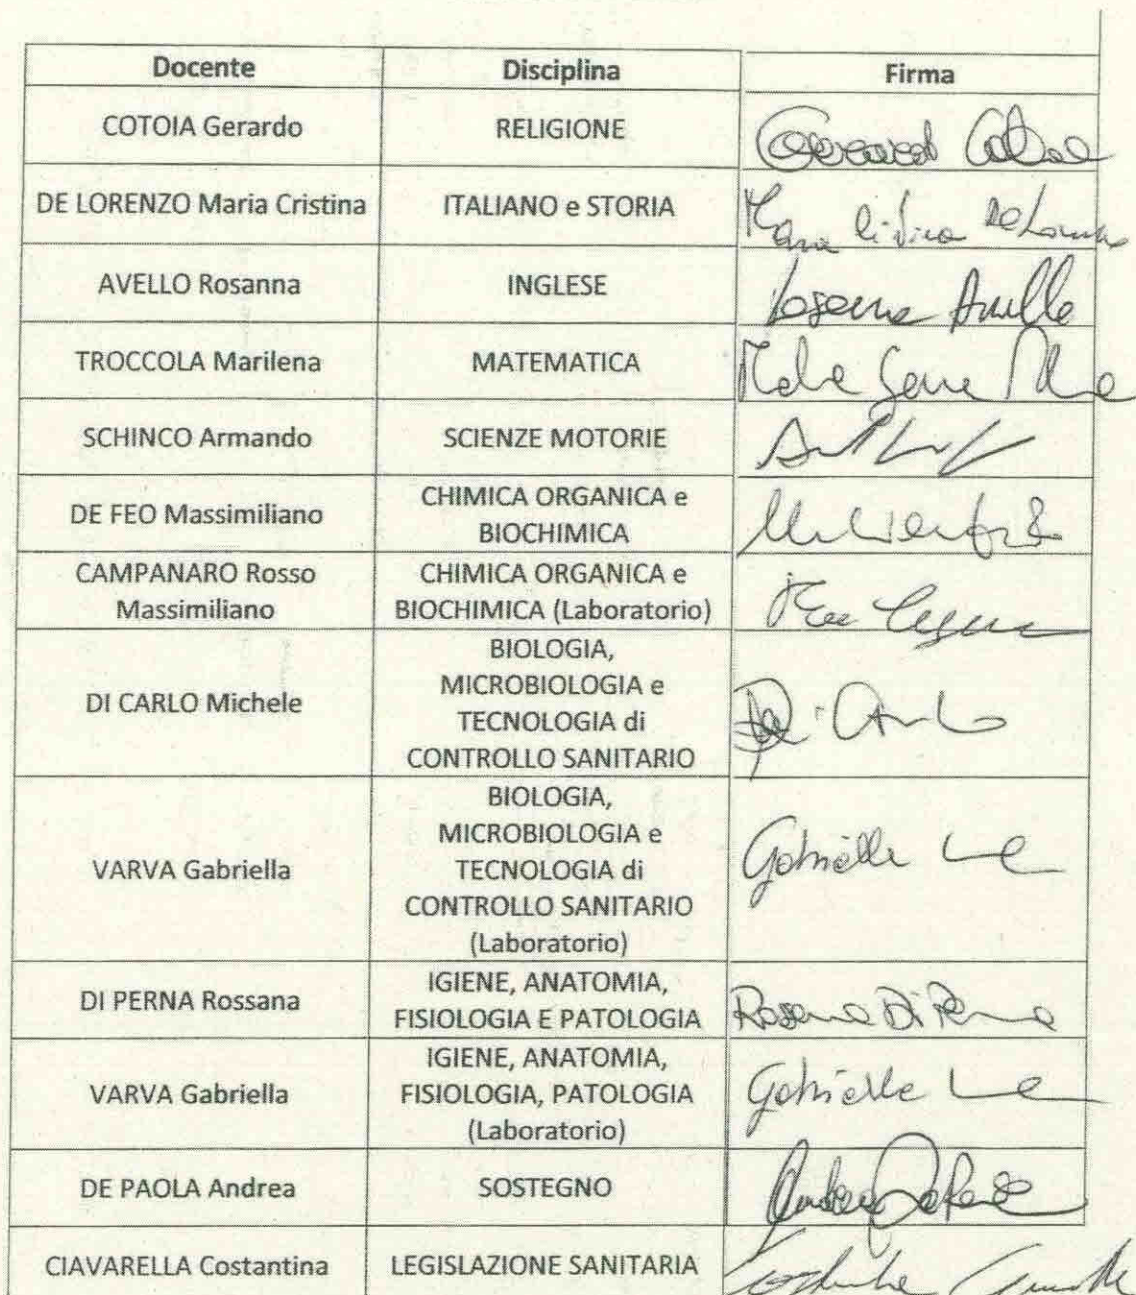 Docente Disciplina Firma
COTOIA Gerardo RELIGIONE
DE LORENZO Maria Cristina ITALIANO e STORIA
AVELLO Rosanna INGLESE
TROCCOLA Marilena MATEMATICA
SCHINCO Armando SCIENZE MOTORIE
DE FEO Massimiliano CHIMICA ORGANICA e
BIOCHIMICA
CAMPANARO Rosso
Massimiliano
CHIMICA ORGANICA e
BIOCHIMICA (Laboratorio)
DI CARLO Michele
BIOLOGIA,
MICROBIOLOGIA e
TECNOLOGIA di
CONTROLLO SANITARIO
Di Carlo
VARVA Gabriella
BIOLOGIA,
MICROBIOLOGIA e
TECNOLOGIA di
CONTROLLO SANITARIO
(Laboratorio)
DI PERNA Rossana
IGIENE, ANATOMIA,
FISIOLOGIA E PATOLOGIA
VARVA Gabriella
IGIENE, ANATOMIA,
FISIOLOGIA, PATOLOGIA
(Laboratorio)
DE PAOLA Andrea SOSTEGNO
CIAVARELLA Costantina LEGISLAZIONE SANITARIA